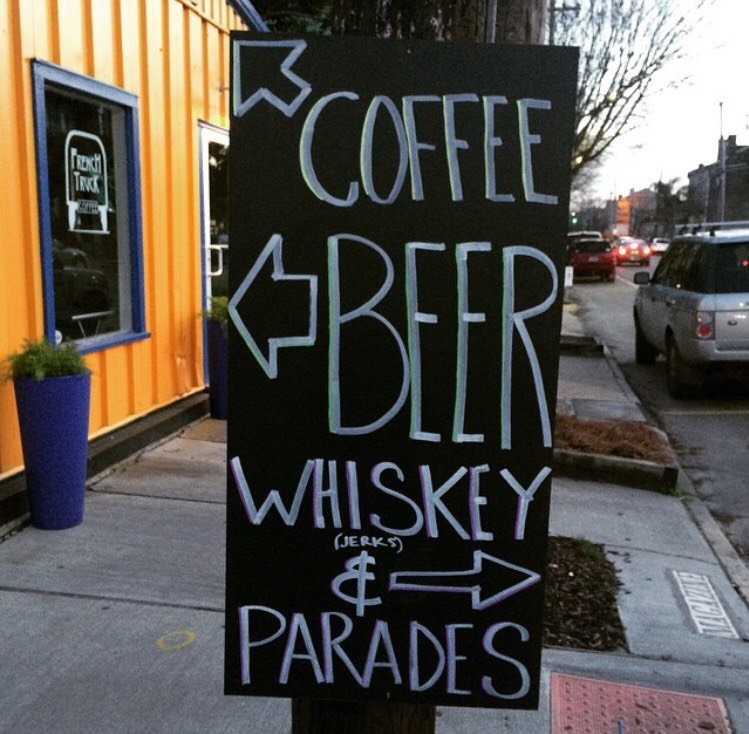 COFFEE
BEER
WHISKEY
(JERKS)
&
PARADES
FRENCH
TRUCK
COFFEE